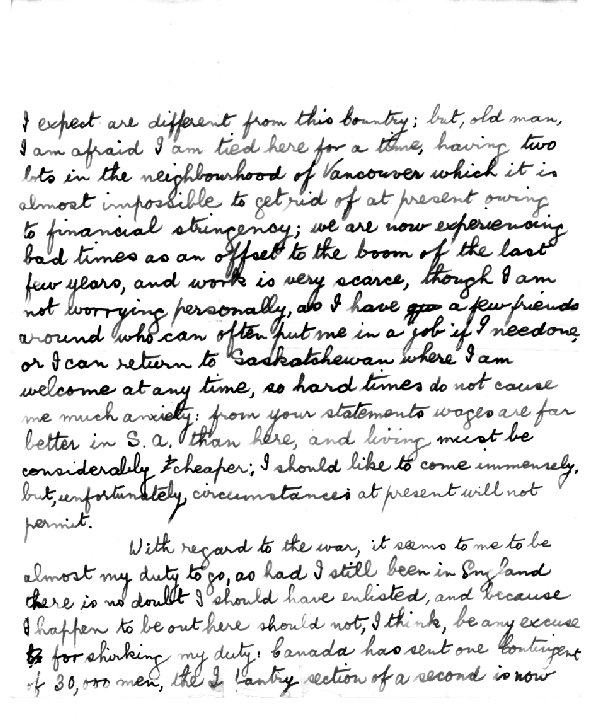 I expect are different from this Country; but, old man,
I am afraid I am tied here for a time, having two
lots in the neighbourhood of Vancouver which it is
almost impossible to get rid of at present owing
to financial stringency; we are now experiencing
bad times as an offset to the boom of the last
few years, and work is very scarce, though I am
not worrying personally, as I have a few friends
around who can often put me in a job if I need one,
or I can return to Saskatchewan where I am
welcome at any time, so hard times do not cause
me much anxiety: from your statements wages are far
better in S.A. than here, and living must be
considerably cheaper; I should like to come immensely,
but, unfortunately, circumstances at present will not
permit.
With regard to the war, it seems to me to be
almost my duty to go, as had I still been in England
there is no doubt I should have enlisted, and because
I happen to be out here should not, I think, be any excuse
for shirking my duty. Canada has sent one Contingent
of 30,000 men, the section of a second is now